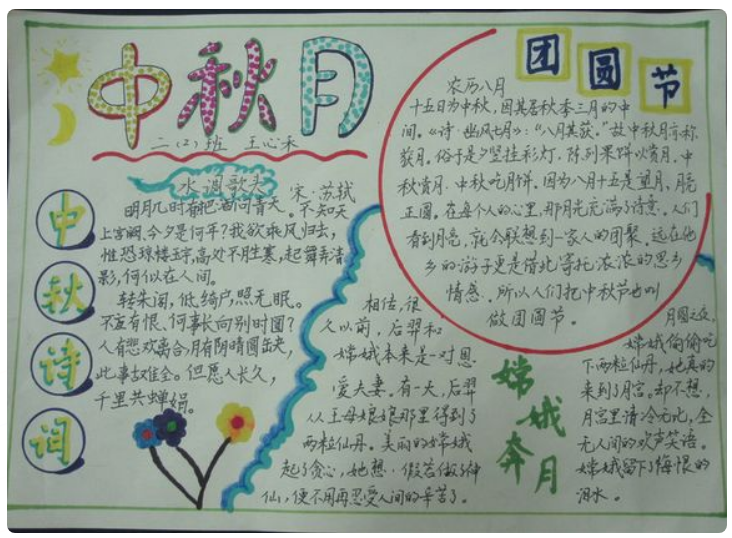 中秋月
二(2)班 王心禾
团圆节
农历八月
十五日为中秋,因其居秋季三月的中
间。《诗·豳风七月》:“八月其获。”故中秋月亦称
获月。俗于是夕竖挂彩灯.陈列果饼以赏月.中
秋赏月.中秋吃月饼。因为八月十五是望月、月亮
正圆。在每个人的心里,那月光充满了诗意。人们
看到月亮,就会联想到一家人的团聚。远在他
乡的游子更是借此寄托浓浓的思乡
情感、所以人们把中秋节也叫
做团圆节。
中秋诗词
水调歌头 宋·苏轼
明月几时有?把酒问青天。不知天
上宫阙,今夕是何年?我欲乘风归去,
惟恐琼楼玉宇,高处不胜寒,起舞弄清
影,何似在人间。
转朱阁,低绮户,照无眠。
不应有恨、何事长向别时圆?
人有悲欢离合,月有阴晴圆缺,
此事古难全。但愿人长久,
千里共婵娟。
嫦娥奔月
相传,很
久以前,后羿和
嫦娥本来是一对恩
爱夫妻。有一天,后羿
从王母娘娘那里得到了
两粒仙丹。美丽的嫦娥
起了贪心,她想,假若做了神
仙,便不用再忍受人间的辛苦了。
月圆之夜,
嫦娥偷偷吃
下两粒仙丹,她真的
来到了月宫。却不想,
月宫里清冷无比,全
无人间的欢声笑语。
嫦娥留下了悔恨的
泪水。